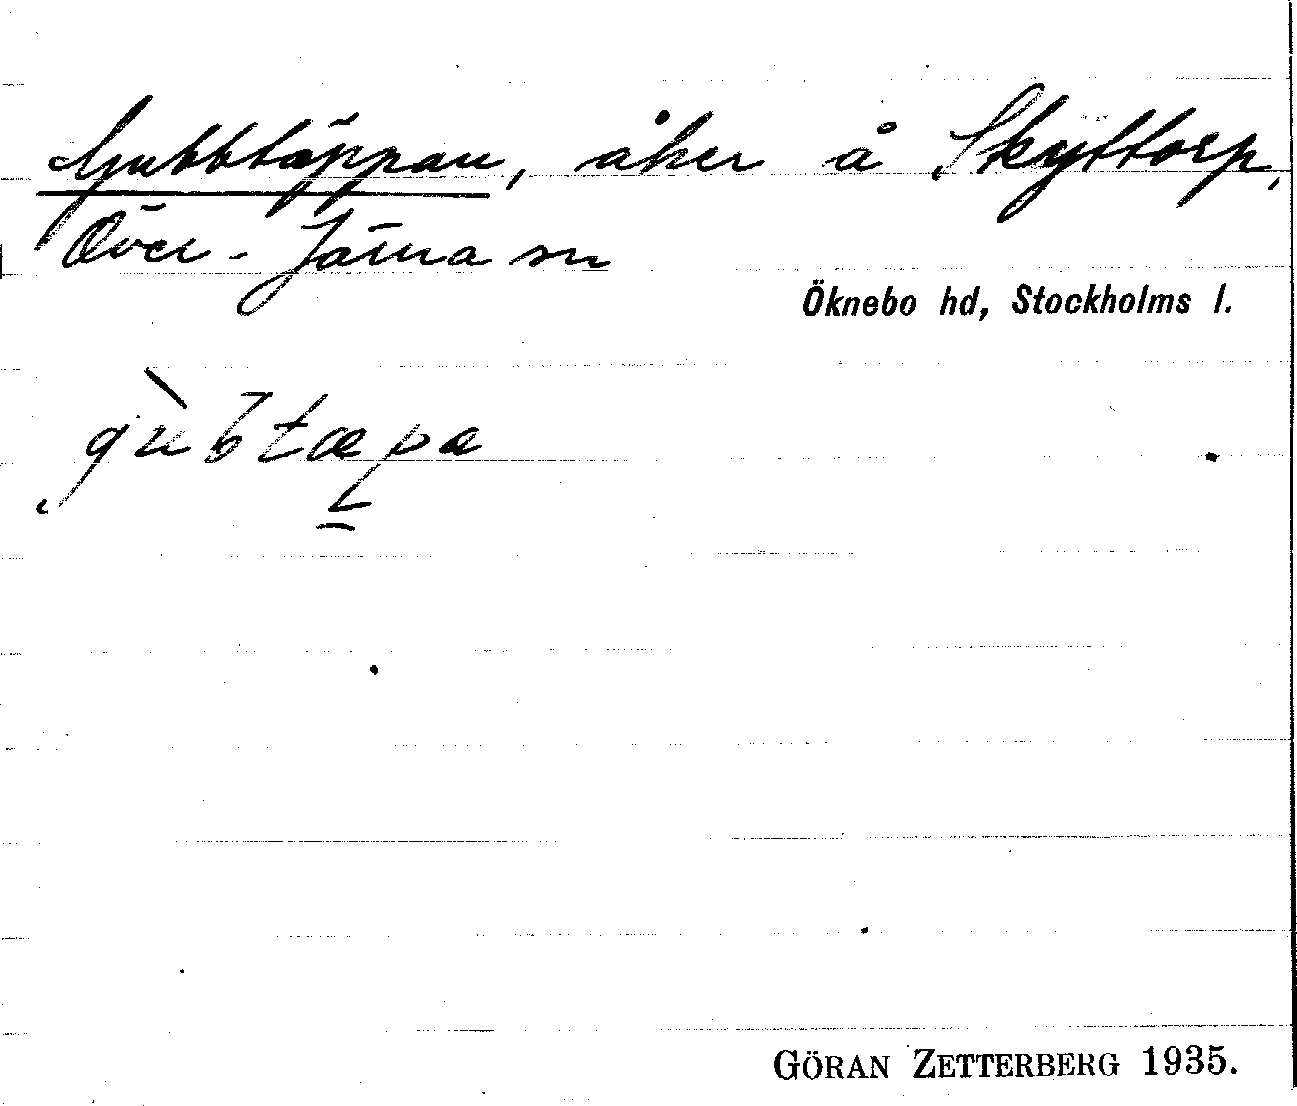 Gubbtäppan, åker å Skyttorp,
Över-Järna sn
Öknebo hd, Stockholms l.
gùbtæpa
GÖRAN ZETTERBERG 1935.